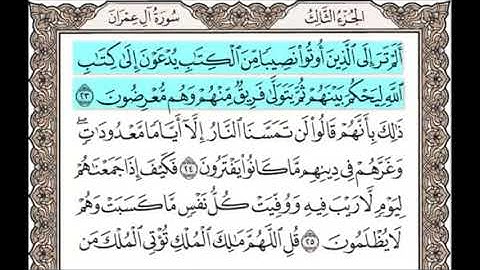 سُورَةُ آلِ عِمْرَانَ
الجُزْءُ الثَّالِثُ
أَلَمْ تَرَ إِلَى ٱلَّذِينَ أُوتُوا۟ نَصِيبًا مِّنَ ٱلْكِتَٰبِ يُدْعَوْنَ إِلَىٰ كِتَٰبِ
ٱللَّهِ لِيَحْكُمَ بَيْنَهُمْ ثُمَّ يَتَوَلَّىٰ فَرِيقٌ مِّنْهُمْ وَهُم مُّعْرِضُونَ ٢٣
ذَٰلِكَ بِأَنَّهُمْ قَالُوا۟ لَن تَمَسَّنَا ٱلنَّارُ إِلَّآ أَيَّامًا مَّعْدُودَٰتٍ ۖ
وَغَرَّهُمْ فِى دِينِهِم مَّا كَانُوا۟ يَفْتَرُونَ ٢٤ فَكَيْفَ إِذَا جَمَعْنَٰهُمْ
لِيَوْمٍ لَّا رَيْبَ فِيهِ وَوُفِّيَتْ كُلُّ نَفْسٍ مَّا كَسَبَتْ وَهُمْ
لَا يُظْلَمُونَ ٢٥ قُلِ ٱللَّهُمَّ مَٰلِكَ ٱلْمُلْكِ تُؤْتِى ٱلْمُلْكَ مَن